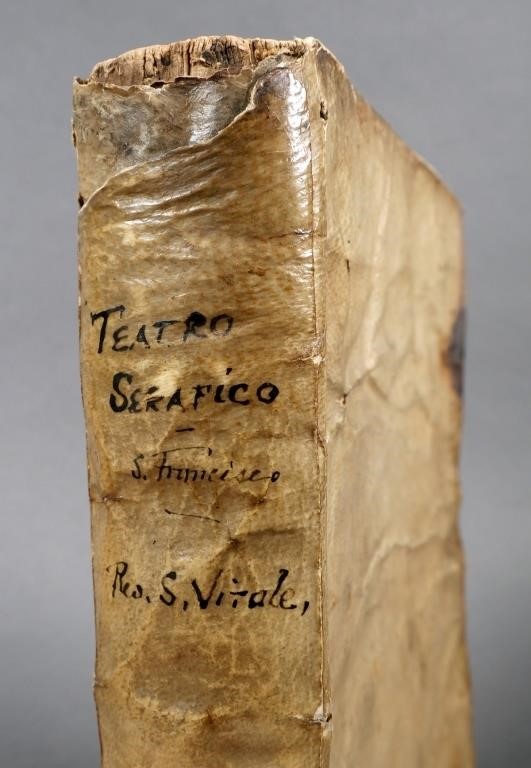 TEATRO
SERAFICO
S. Francisco
Rev. S. Vitale,